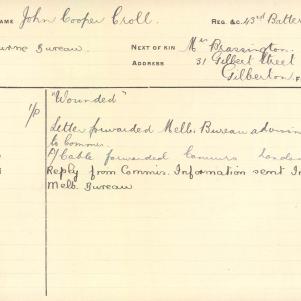 NAME John Cooper Croll. REG. &C. 43rd Batter
urne Bureau. NEXT OF KIN Mrs Brassington.
ADDRESS 31 Gilbert Street
Gilberton.
"Wounded"
Letter forwarded Melb. Bureau advising
to Commis.
P/Cable forwarded Commrs London
Reply from Commis. Information sent In
Melb. Bureau